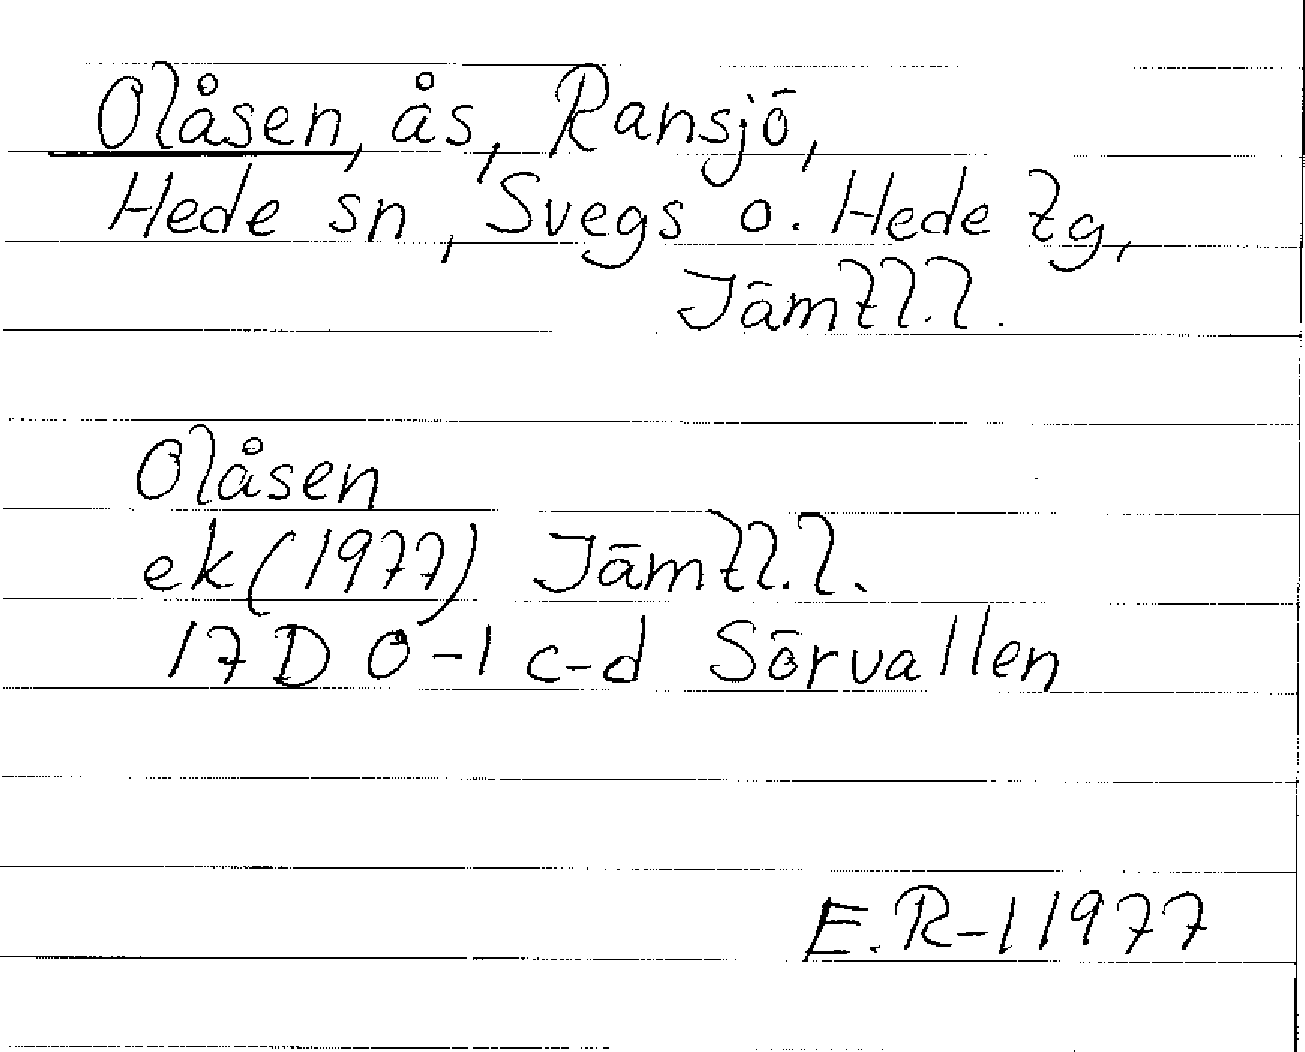 Olåsen, ås, Ransjö,
Hede sn, Svegs o. Hede tg,
Jämtl.l.
Olåsen
ek (1977) Jämtl.l.
17 D 0-1 c-d Sörvallen
E.R-l 1977